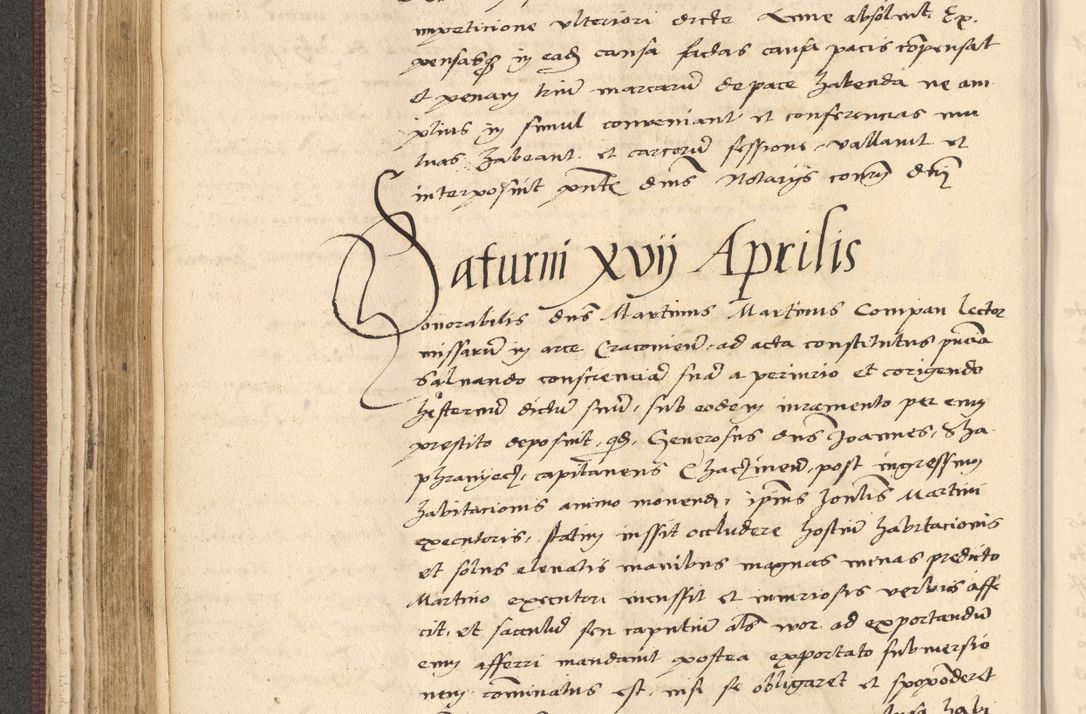 impeticione ulteriori dicte Anne absoluit Ex
pensasq3 in ead causa factas causa pacis compensat
et penam trium marcarum de pace habenda ne am
plius in simul conveniant et conferencias mu
tuas habeant et carcerum sessione vallauit et
interposuit pnte dnis Notarijs contra dtm
Saturni xvij Aprilis
Honorabilis dns Martinus Martinus Compan lector
missarum in arce Cracouien ad acta constitutus
Saluando conscienciam suam a periurio et corigendo
hesternum dictum suum, sub eodem iuramento per eum
prestito deposuit, qd, Generosus dns Joannes, Sza
phranyecz, capitaneus Chaczinen, post ingressum
habitacionis animo monend, ipius Martini
executoris, statim iussit occludere hostium habitacionis
et solus eleuatis manibus magnas minas predicto
Martino executori incussit et iniuriosis verbis affe
cit, et sacculum seu caputium als wor ad exportandum
eum afferri mandauit postea exportato submersio
nem cominatus est, nisi se obligaret et sponderet
habi